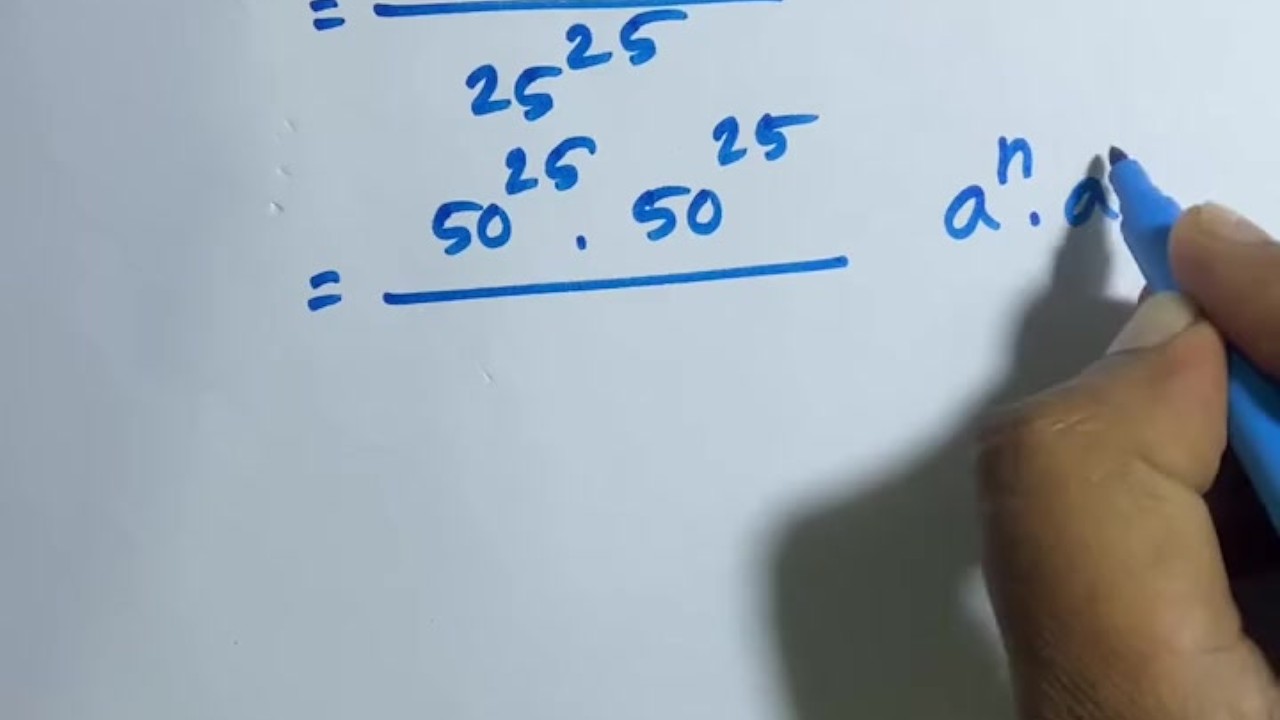 = ────
25^25
50^25 . 50^25
= ────
a^n . a